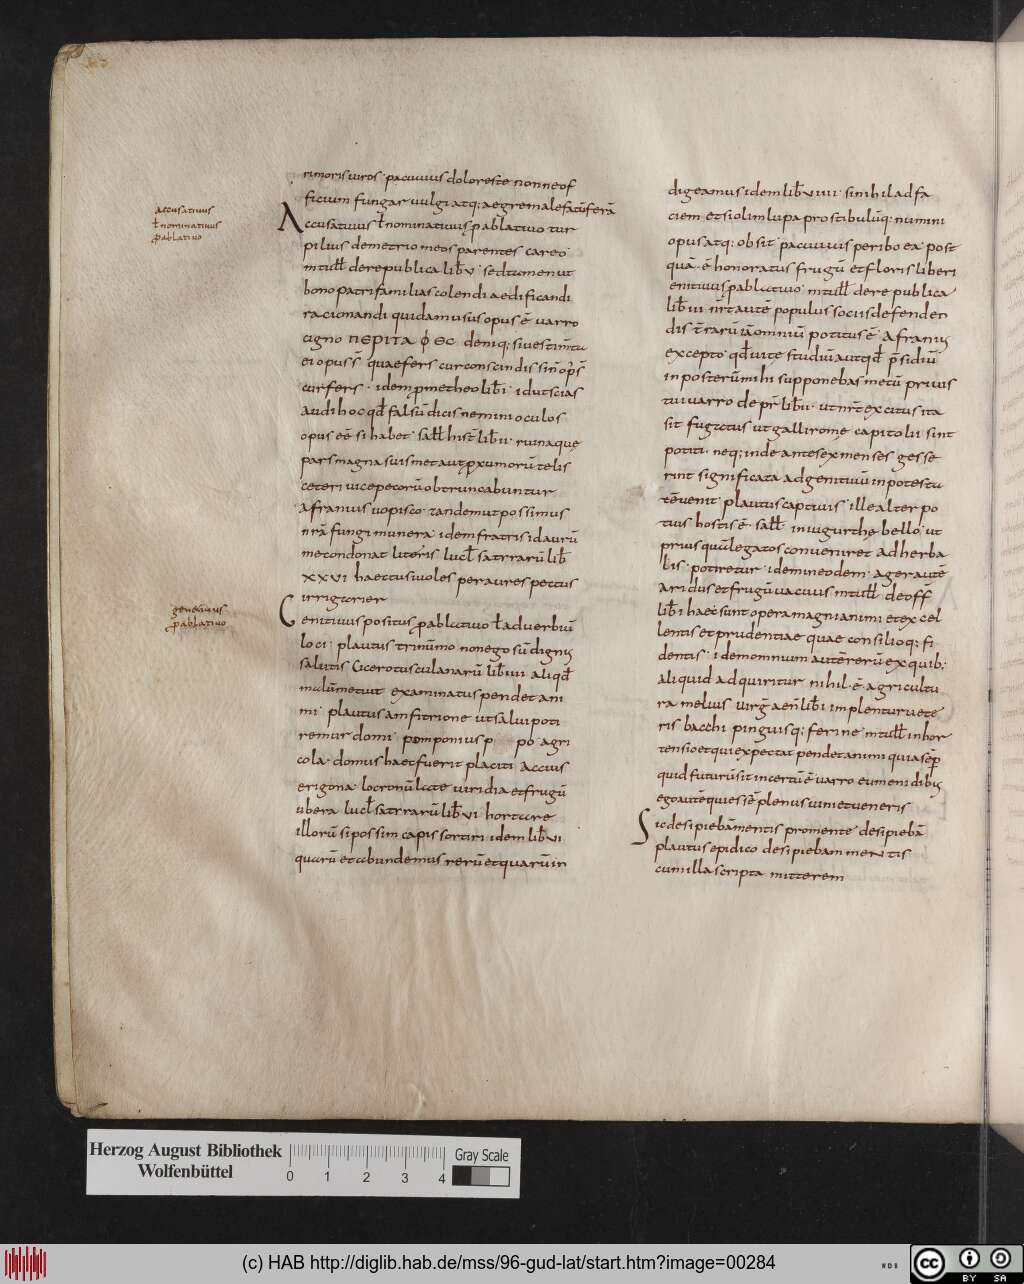 accusativus
ł nominativus
p ablativo
rimoris uiros · pacuuius doloreste non neof
ficium fungar uulgi atq; aegre malefactū ferā
Accusatiuus ł nominatiuus p ablatiuo tur
pilius demetrio meos parentes careo
m tull de re publica lib v · sed tamen ut
bono patri familias colendi aedificandi
racionandi quidam usus opus ē uarro
deniq; si uestimta
ei opus s̄ quae fers cur conscindis sin op̄s
cur fers · idem prometheo lib i · id ut scias
audi hoc qđ falsū dicis nemini oculos
opus eē si habet · sall hist lib ii · ruinaque
pars magna suis met aut proxumorū telis
ceteri uice pecorū obtruncabuntur
afranius uopisco · tandem ut possimus
nrā fungi munera · idem fratris id aurū
me condonat literis lucl satrrarū lib
xxvi haec tu si uoles per aures pectus
irrigarier
genetiuus
p ablatiuo
Genitiuus positus p ablatiuo ł aduerbiū
loci · plautus trinūmo non ego sū dignus
salutis Cicero tusculanarū lib iiii aliqđ
malū metuit examinatus pendet ani
mi · plautus amfitrione ut salui poti
remur domi · pomponius p po · agri
cola · domus haec fuerit placiti accius
erigona · locronū late uiridia et frugū
ubera lucl satrrarū lib vi hortare
illorū si possim capis sortiri idem lib vi
quarū et abundemus rerū et quarū in
digeamus idem lib viiii · si nihil ad fa
ciem et si olim lupa prostibulūq; nummi
opus atq; obsit · pacuuius peribo ea · post
quā · ē honoratus frugū et floris liberi
enitiuus p ablatiuo · m tull de re publica
lib iii nr autē populus sociis defenden
dis trarū iā omniū potitus ē · Afranius
excepto · qđ uite studiū aut qđ p̄sidiū
in posterū mihi supponebas metū priuis
tui uarro de p̄ r lib ii · ut nr exercitus ita
sit fugatus ut galli rome capitolii sint
potiti · neq; inde ante sex menses gesse
rint significata ad genitiuū in potesta
tē uenit · plautus captiuis · ille alter po
titus hostis ē · sall in iugurthe bello · ut
prius quā legatos conueniret adherba
lis · potiretur · idem in eodem · ager autē
aridus et frugū uacuus m tull · de off
lib i haec sunt opera magni animi et excel
lentis et prudentiae quae consilioq; fi
dentis · idem omnium autē rerū ex quib;
aliquid adquiritur nihil · ē agricultu
ra melius uirg aen lib i implentur uete
ris bacchi pinguisq; ferine · m tull in hor
tensio et qui expectat pendet animi quia sēp
quid futurū sit incertū ē uarro eumenidibus
ego autē qui essē plenus uini et ueneris
Sic desipiebā mentis pro mente · desipiebā
plautus epidico desipiebam mentis
cum illa scripta mitterem
Herzog August Bibliothek
Wolfenbüttel
0 1 2 3 4
Gray Scale
(c) HAB http://diglib.hab.de/mss/96-gud-lat/start.htm?image=00284
WDB
cc BY SA